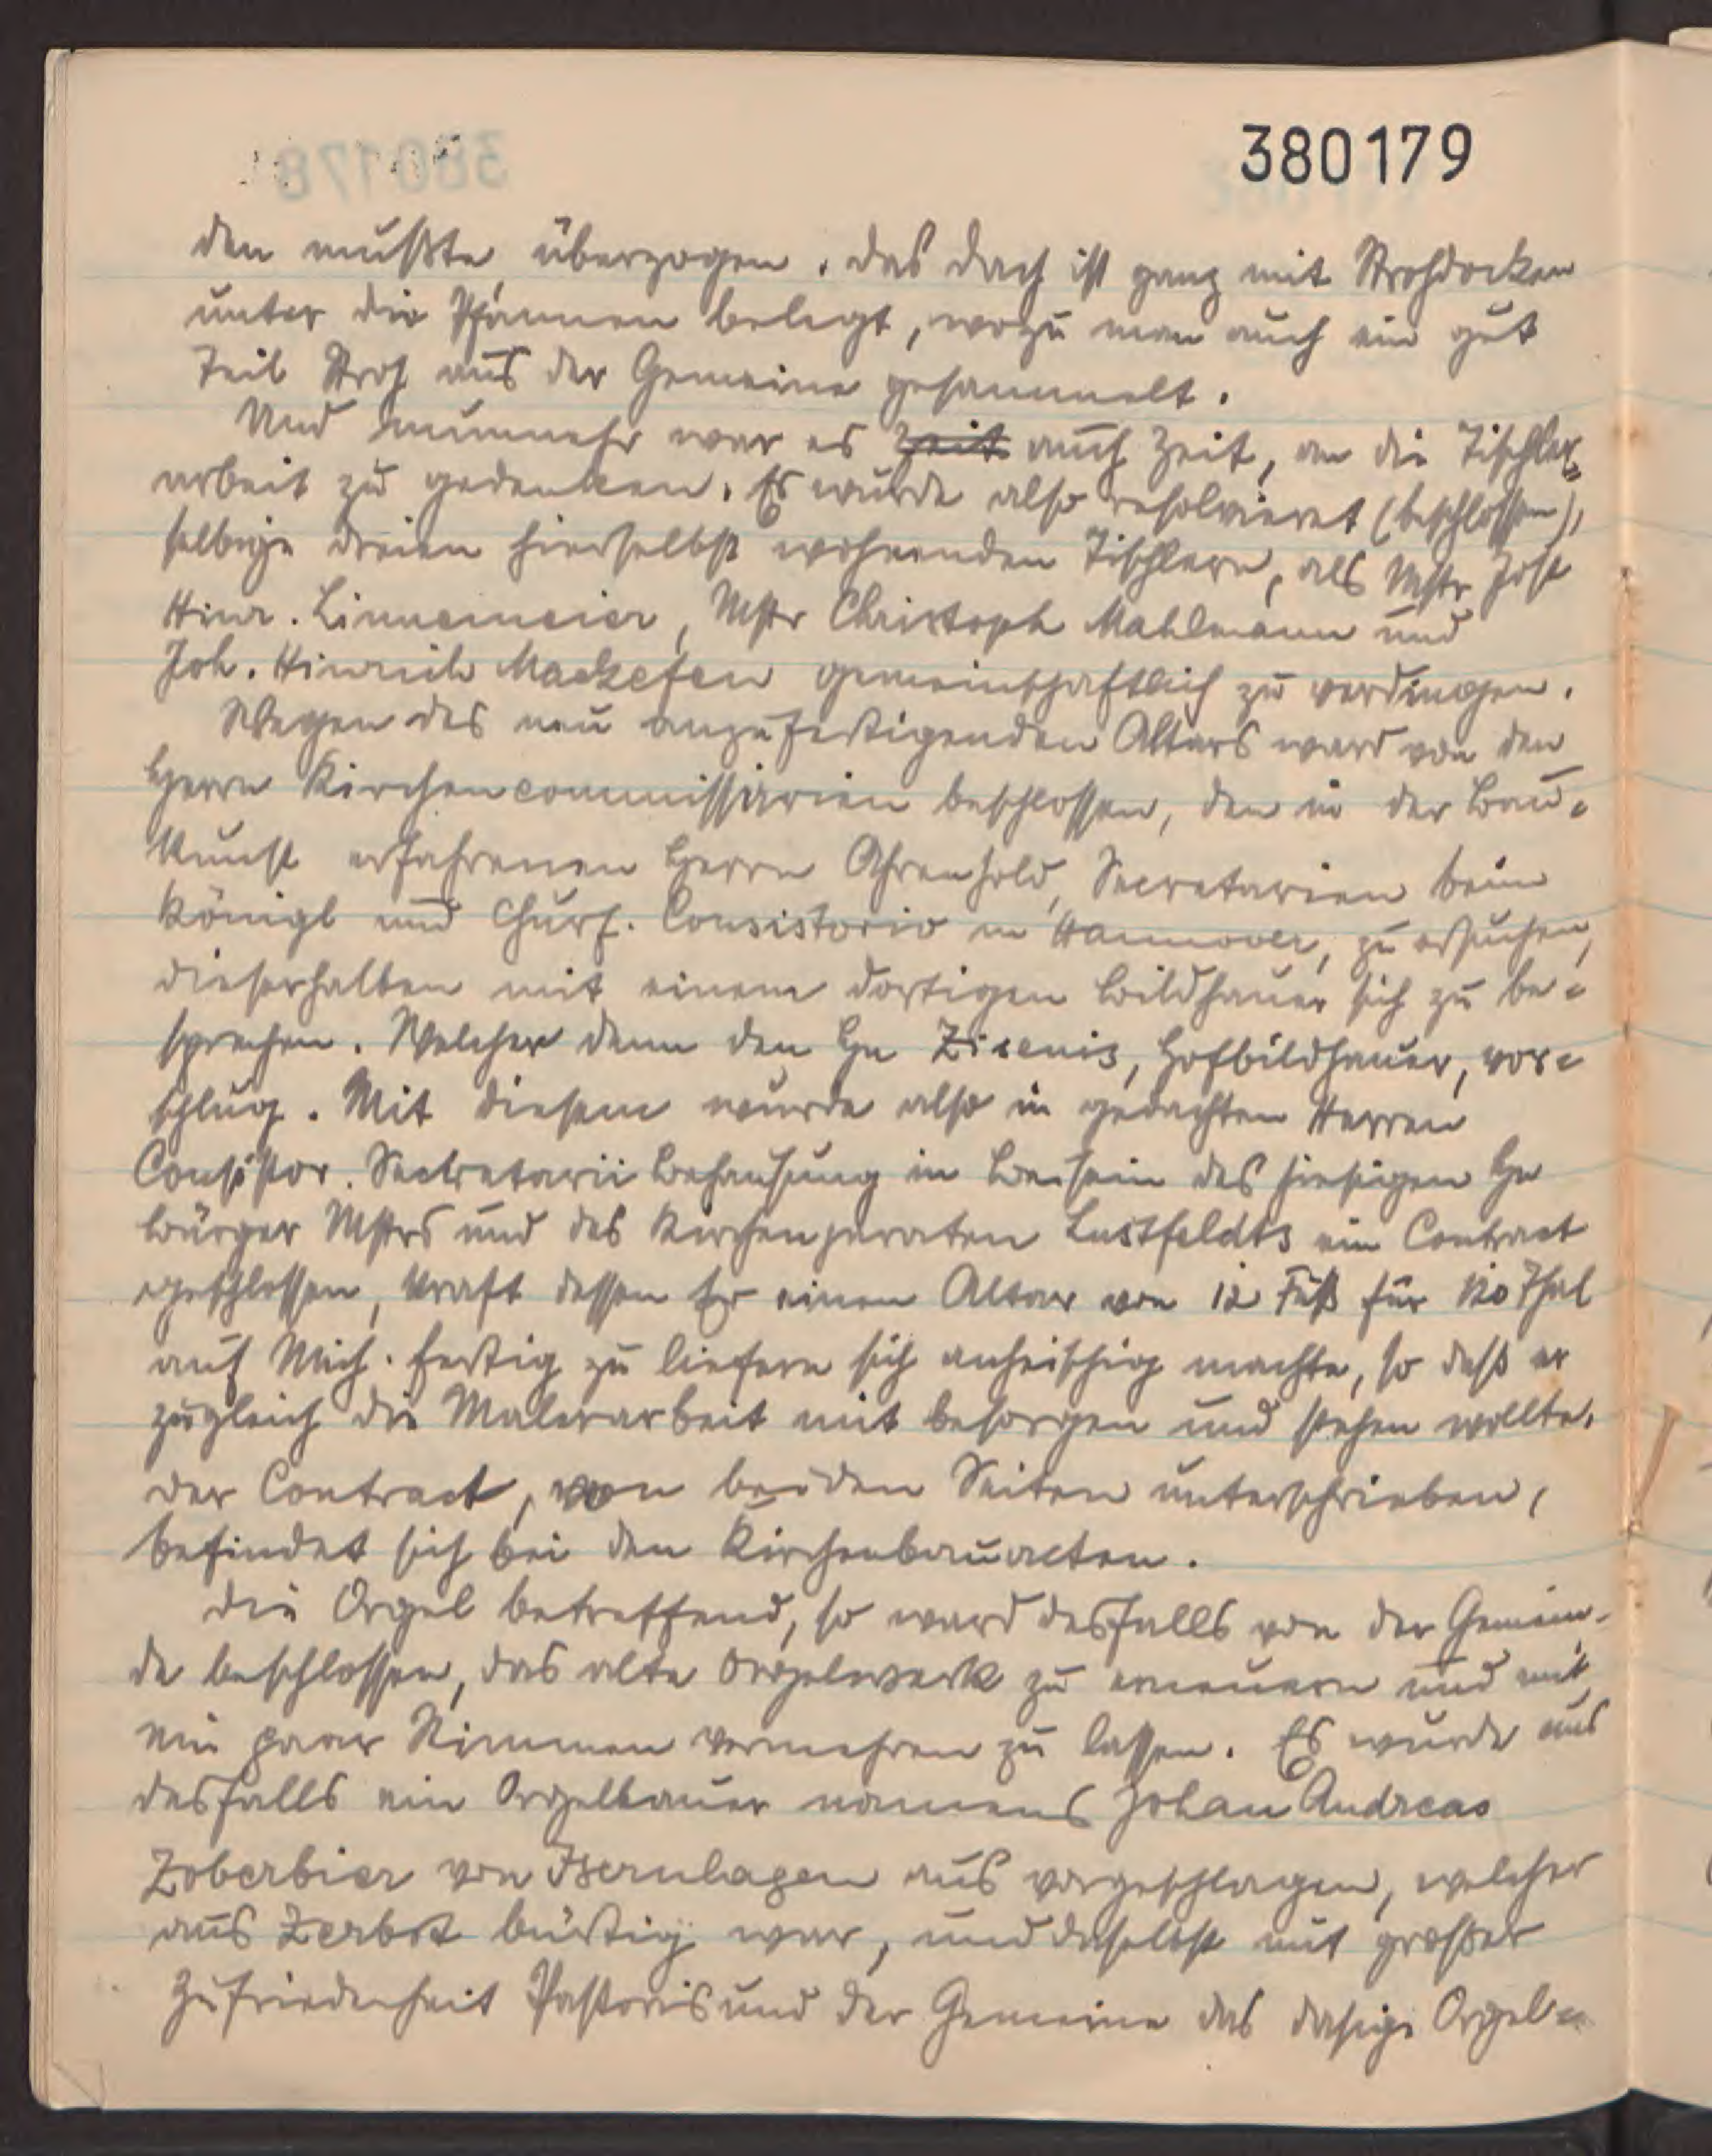 380179
den mußte, überzogen. Das Dach ist ganz mit Strohdocken
unter die Pfannen belegt, wozu man auch ein gut
Teil Stroh aus der Gemeine gesammelt.
Und nunmehr war es Zeit auch Zeit, an die Tischler=
arbeit zu gedenken. Es wurde also resolvieret (beschlossen),
selbige dreien hierselbst wohnenden Tischlern, als Mstr Jost
Hinr. Linnemeier, Mstr Christoph Mahlmann und
Joh. Hinrich Mackefen gemeinschaftlich zu verdingen.
Wegen des neu anzufertigenden Altars ward von den
Herrn Kirchencommissarien beschlossen, den in der Bau-
kunst erfahrenen Herrn Ahrenhold, Secretarien beim
Königl und Churf. Consistorio in Hannover, zu ersuchen,
dieserhalben mit einem dortigen Bildhauer sich zu be-
sprechen. Welcher denn den Hn Zisenis, Hofbildhauer, vor-
schlug. Mit diesem wurde also in gedachten Herren
Consistor. Secretarii Behausung in Beisein des hiesigen Hn
Bürger Mstrs und des Kirchenjuraten Lustfeldts ein Contract
geschlossen, kraft dessen Er einen Altar von 12 Fuß für 120 Thal
auf Mich. fertig zu liefern sich anheischig machte, so daß er
zugleich die Malerarbeit mit besorgen und stehen wollte.
Der Contract, von beiden Seiten unterschrieben,
befindet sich bei den Kirchenbauacten.
Die Orgel betreffend, so ward desfalls von der Gemein-
de beschlossen, das alte Orgelwerk zu erneuern und mit
ein paar Stimmen vermehren zu lassen. Es wurde uns
desfalls ein Orgelbauer namens Johan Andreas
Zoberbier von Isernhagen aus vorgeschlagen, welcher
aus Zerbst bürtig war, und daselbst mit großer
Zufriedenheit Pastoris und der Gemeine das dasige Orgel-